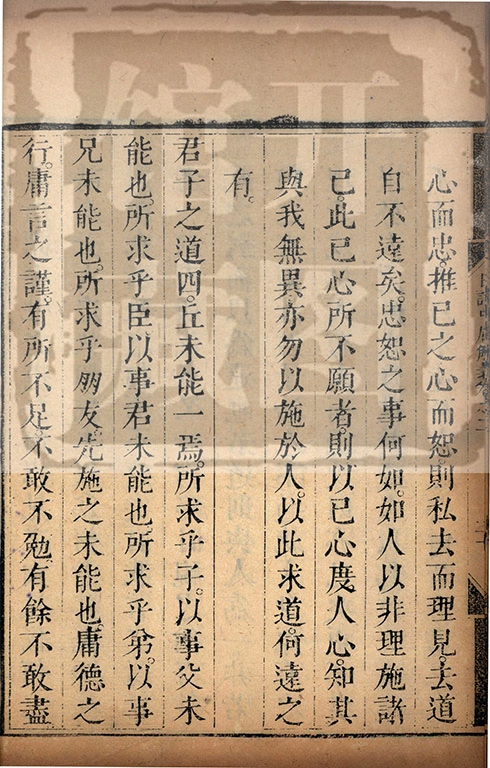 心而忠。推己之心而恕。則私去而理見。去道
自不遠矣。忠恕之事何如。如人以非理施諸
己。此己心所不願者。則以己心度人心。知其
與我無異。亦勿以施於人。以此求道。何遠之
有。
君子之道四。丘未能一焉。所求乎子。以事父未
能也。所求乎臣以事君未能也。所求乎弟。以事
兄未能也。所求乎朋友。先施之未能也。庸德之
行。庸言之謹。有所不足。不敢不勉。有餘不敢盡